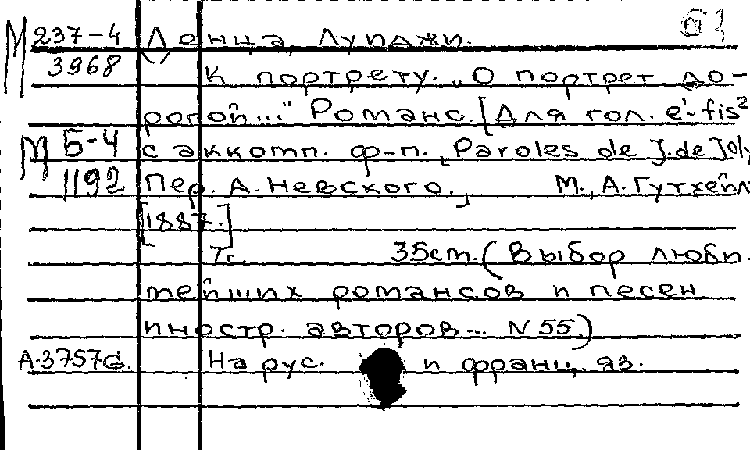 М 237-4 Денца, Луиджи.
3968 К портрету. „О портрет до-
рогой..." Романс. [Для гол. e'-fis²
М Б-4 с аккомп. ф-п., Paroles de J. de Joly
1192 Пер. А. Невского.] М., А. Гутхейл
[1887.]
35см. (Выбор люби-
мейших романсов и песен
иностр. авторов... N 55.)
А.3757б. На рус. и франц. яз.